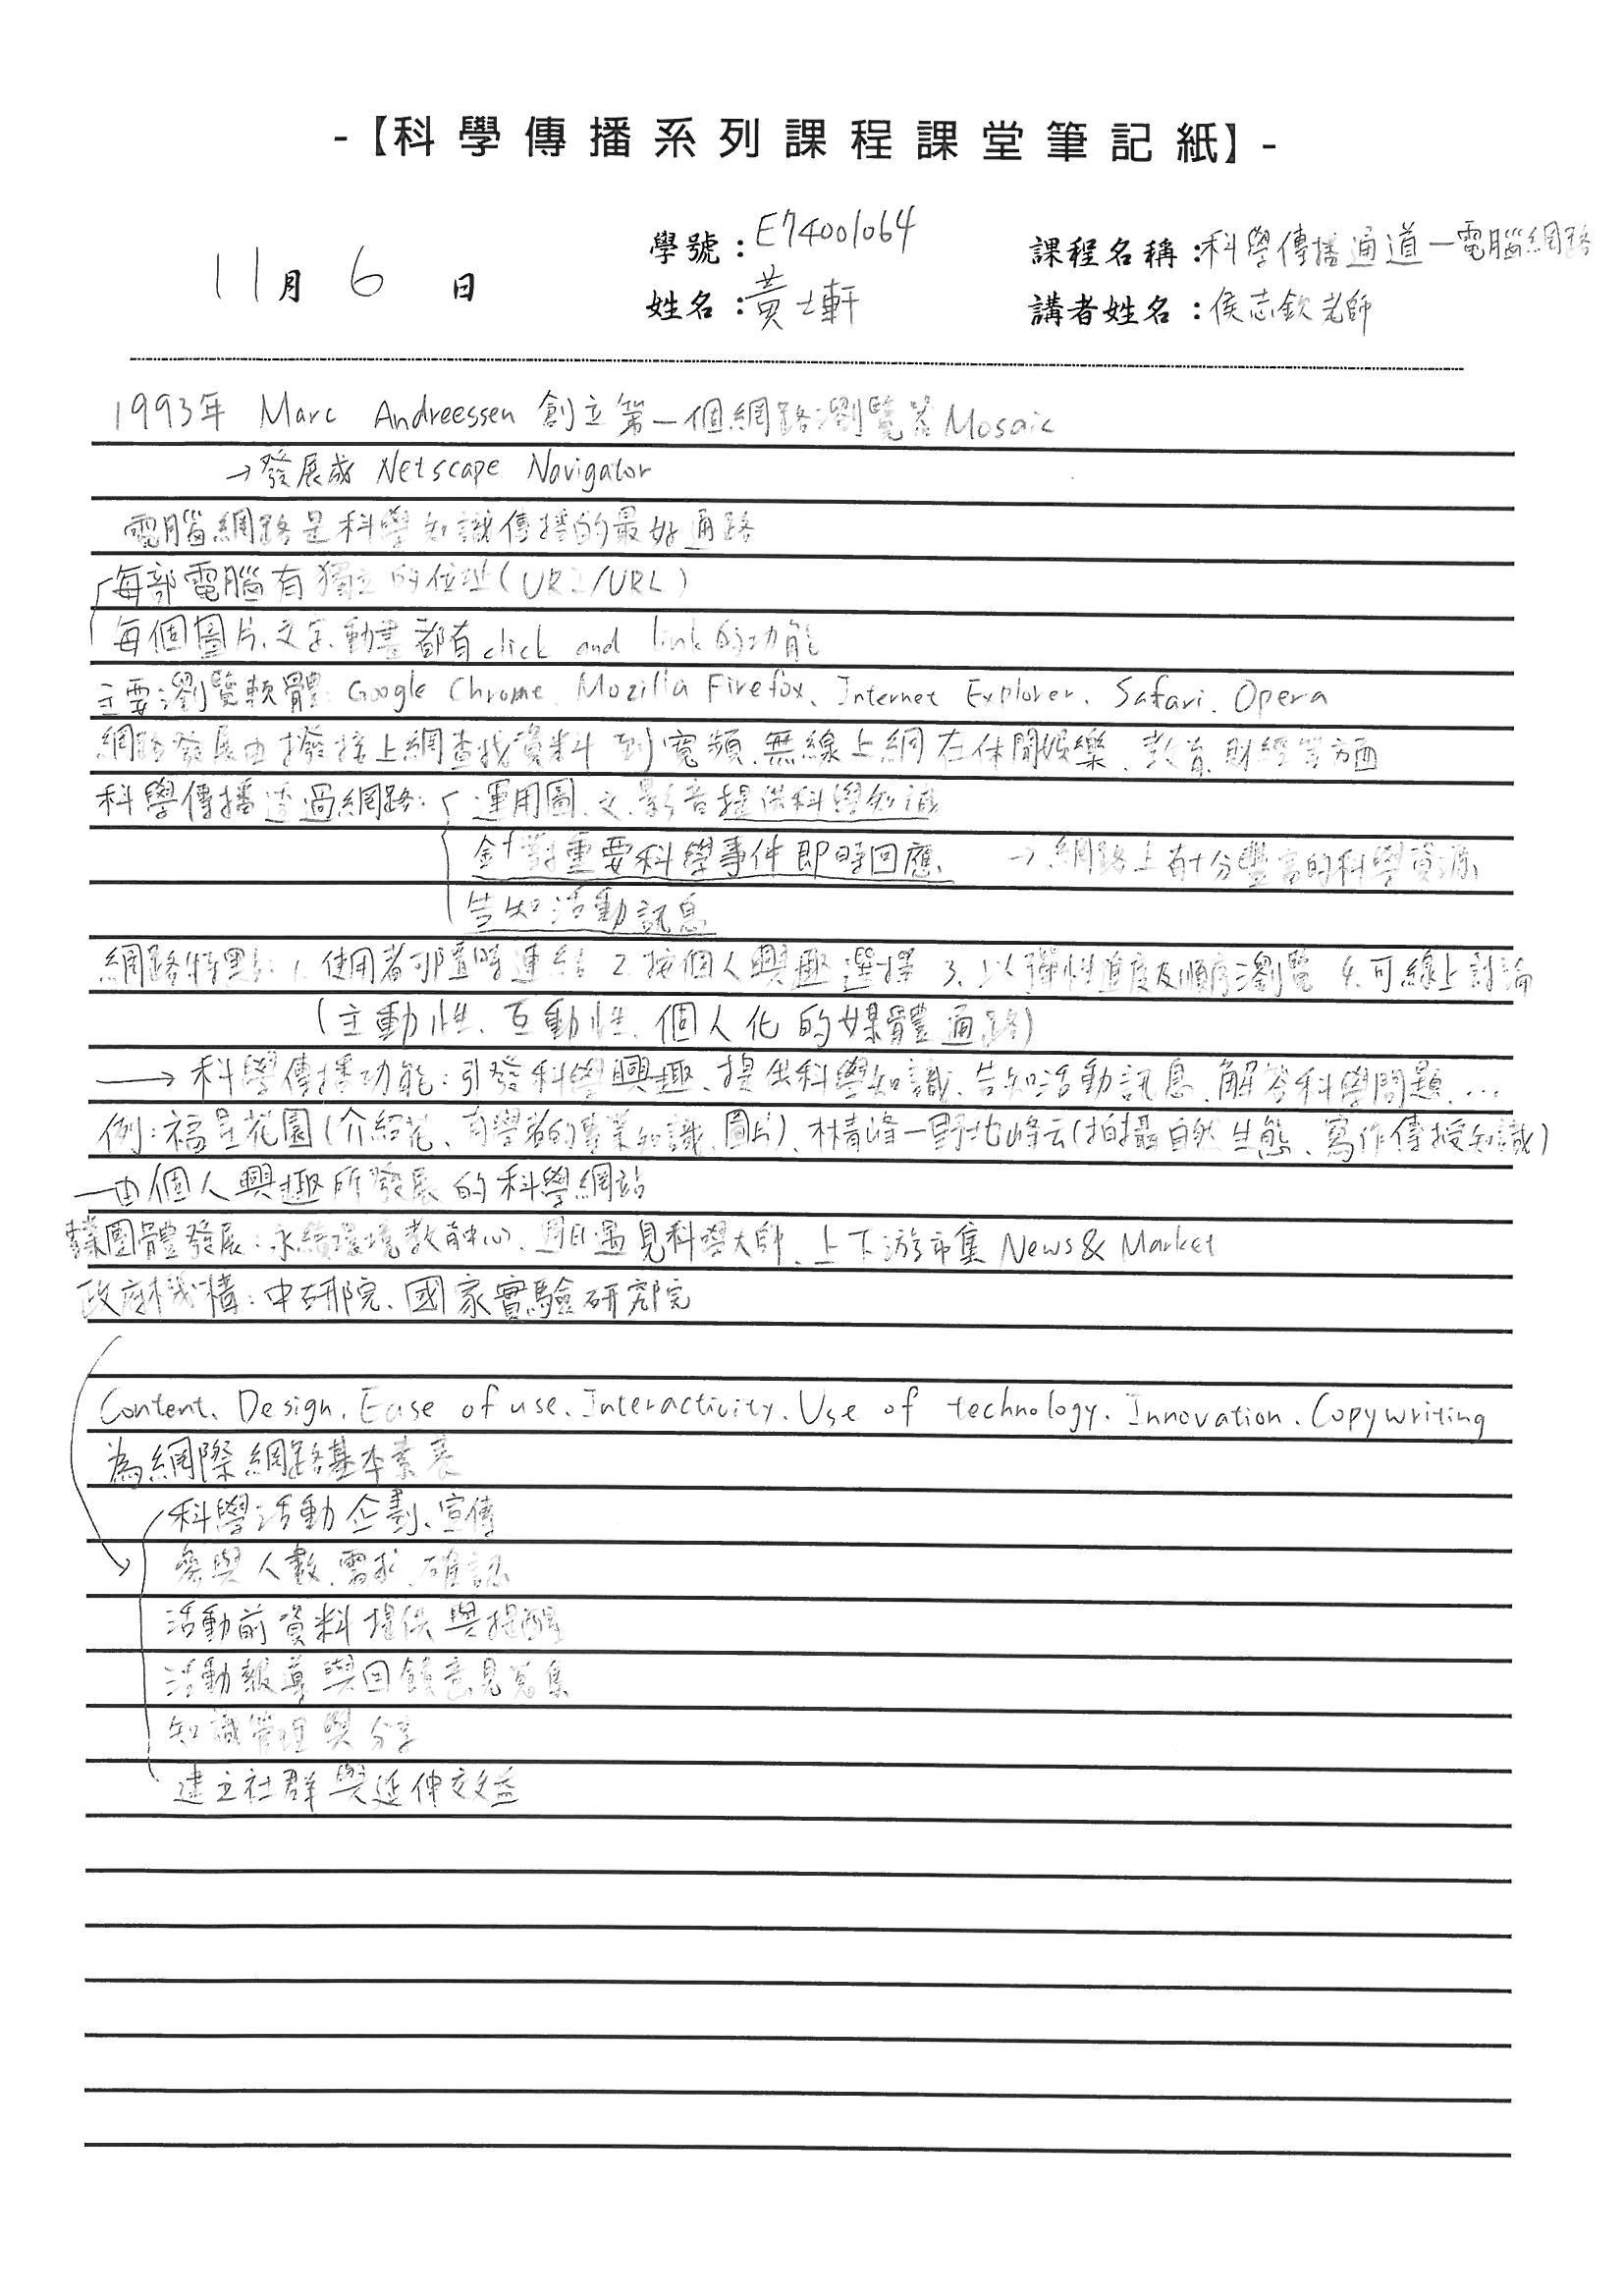 -【科學傳播系列課程課堂筆記紙】-
11月 6 日
學號：E74001064
姓名：黃士軒
課程名稱：科學傳播通道—電腦網路
講者姓名：侯志欽老師
1993年 Marc Andreessen 創立第一個網路瀏覽器Mosaic
→發展成 Netscape Navigator
電腦網路是科學知識傳播的最好通路
每部電腦有獨立的位址(URI/URL)
每個圖片、文字、動畫都有click and link的功能
主要瀏覽軟體：Google Chrome、Mozilla Firefox、Internet Explorer、Safari、Opera
網路發展由撥接上網查找資料到寬頻、無線上網在休閒娛樂、教育、財經等方面
科學傳播透過網路：運用圖、文、影音提供科學知識
針對重要科學事件即時回應、 →網路上有十分豐富的科學資源
告知活動訊息
網路特點：1.使用者可隨時連結 2.按個人興趣選擇 3.以彈性進度及順序瀏覽 4.可線上討論
(主動性、互動性、個人化的媒體通路)
→科學傳播功能：引發科學興趣、提供科學知識、告知活動訊息、解答科學問題、…
例：福星花園(介紹花、有學者的專業知識、圖片)、林青峰—野地峰云(拍攝自然生態、寫作傳授知識)
—由個人興趣所發展的科學網站
團體發展：永續環境教育中心、週日遇見科學大師、上下游市集News & Market
政府機構：中研院、國家實驗研究院
Content、Design、Ease of use、Interactivity、Use of technology、Innovation、Copywriting
為網際網路基本素養
科學活動企劃、宣傳
參與人數、需求、確認
活動前資料提供與提醒
活動報導與回饋意見蒐集
知識管理與分享
建立社群與延伸效益